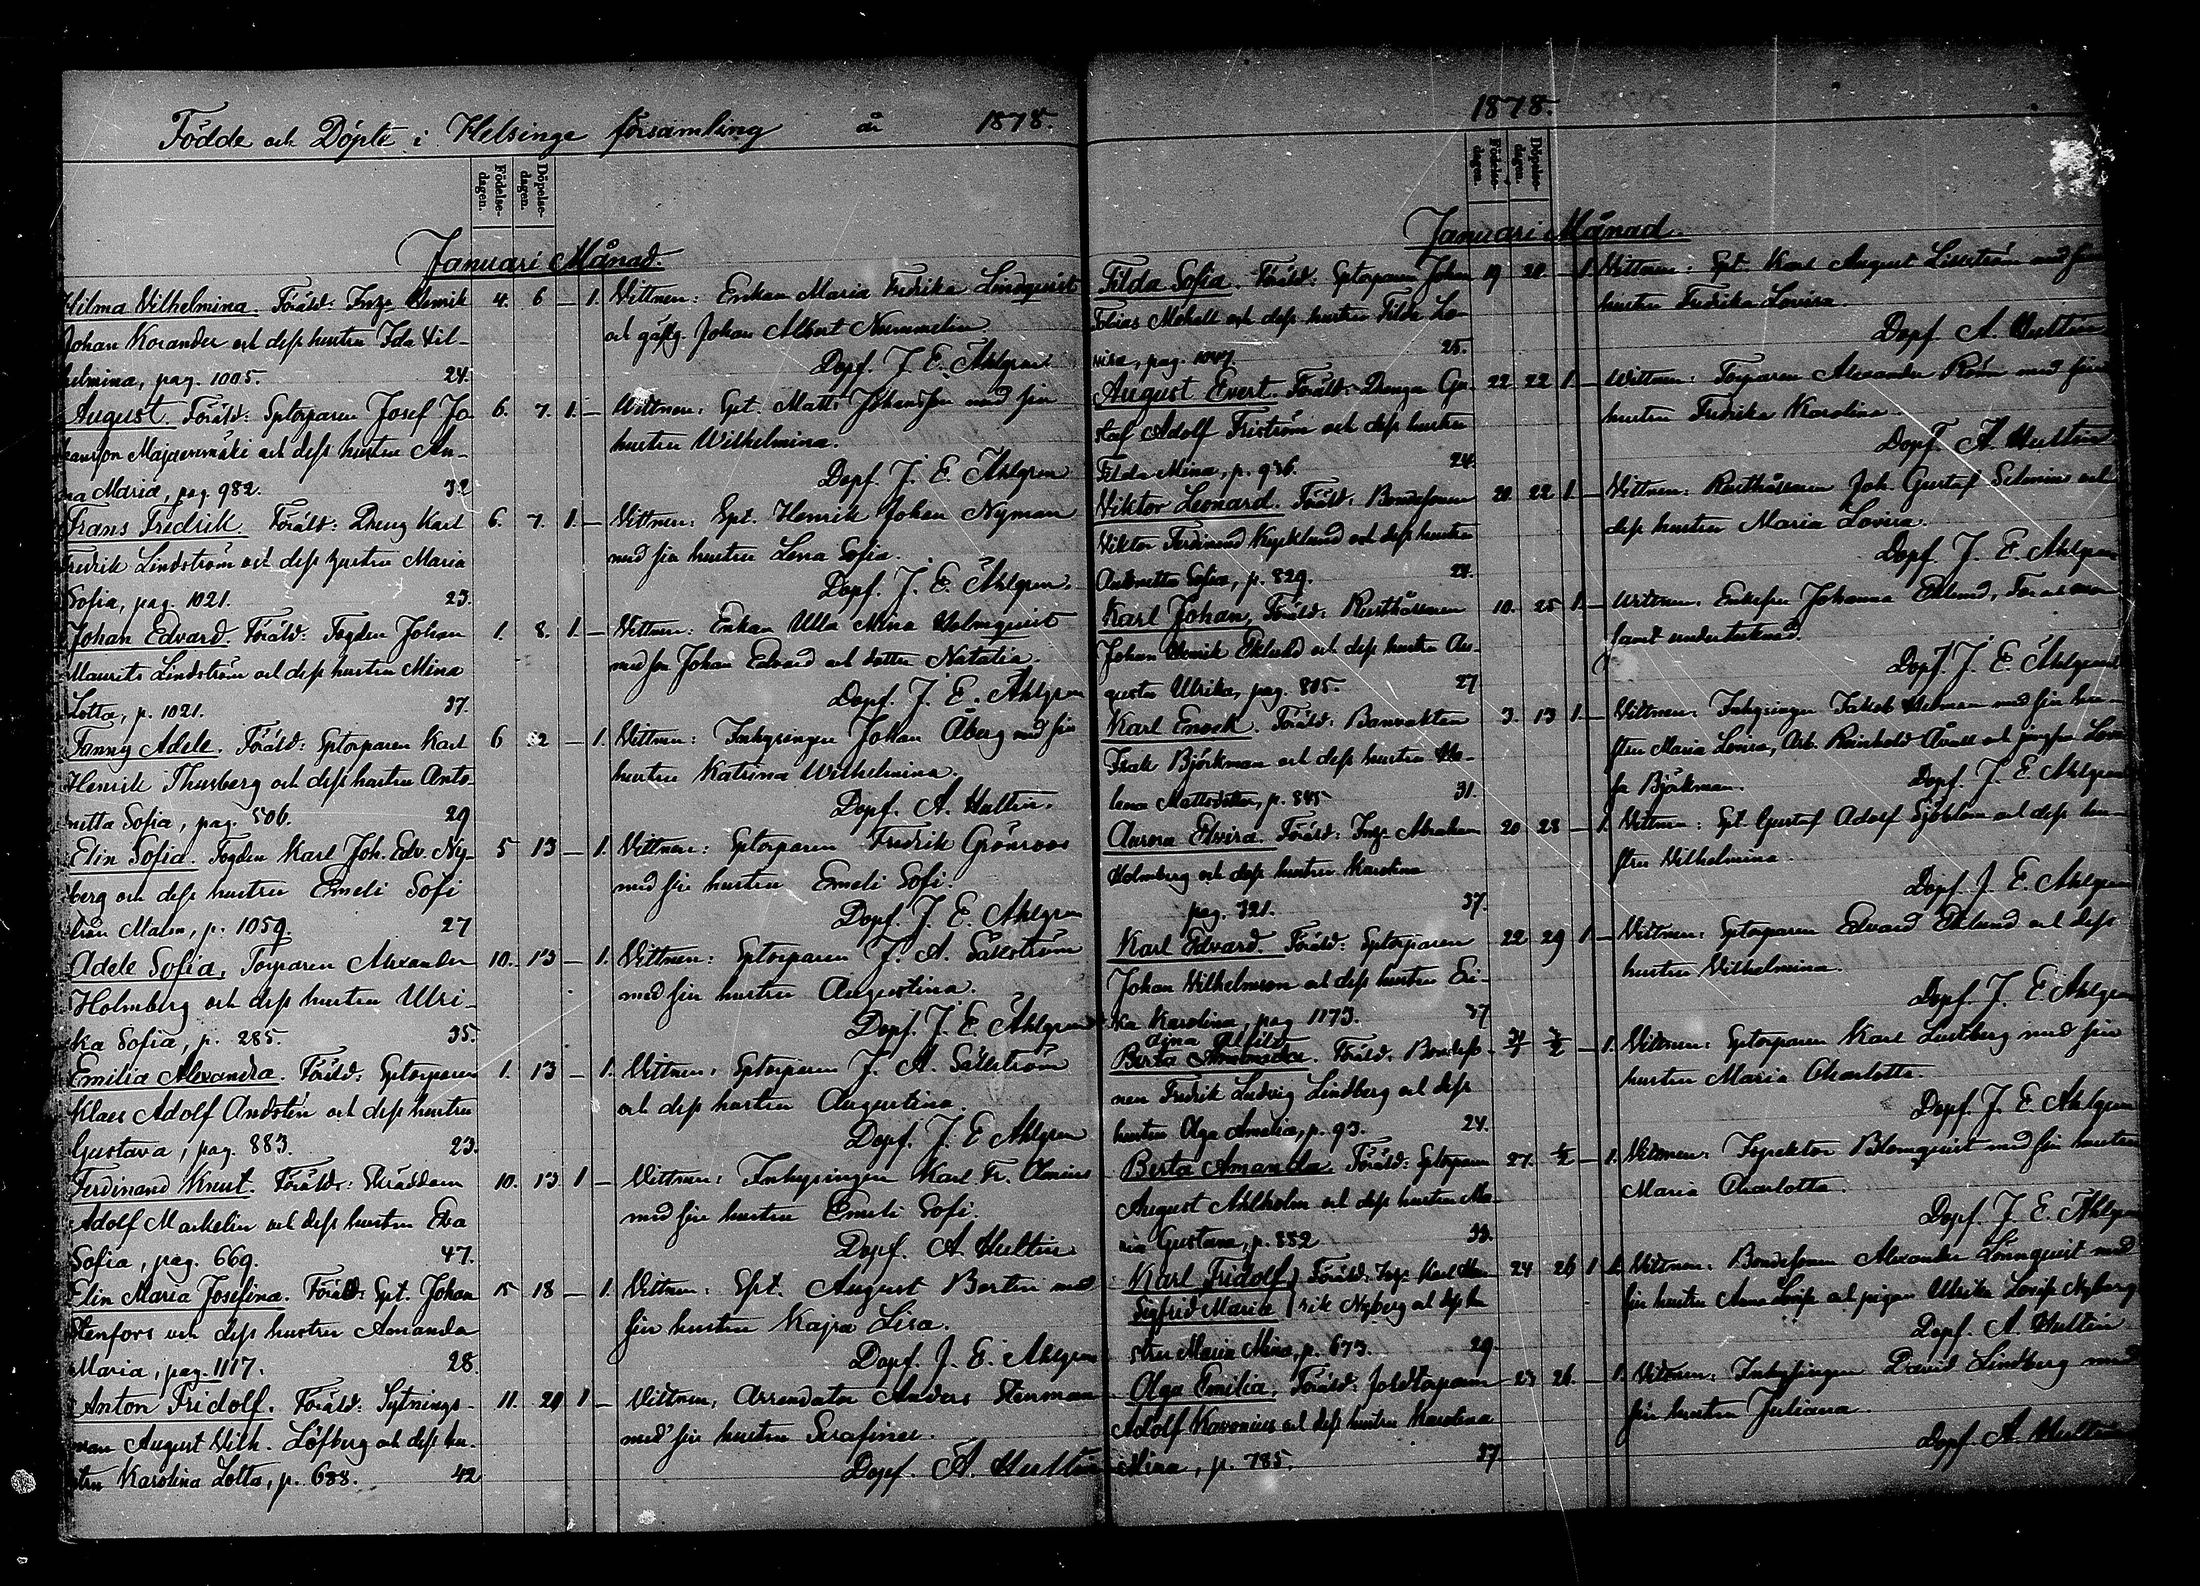 Födde och Döpte i Helsinge församling år 1878.
Födelse-
dagen.
Döpelse-
dagen.
Januari Månad.
Hilma Vilhelmina. Föräld: Inge Henrik 4. 6 — 1. Vittnen: Enkan Maria Fredrika Lindquist
Johan Korander och dess hustru Ida Vil- och gästg. Johan Albert Nummelin.
helmina, pag. 1005. 24. Dopf. J. E. Ahlgren
August. Föräld: Sptorparen Josef Jo- 6. 7. 1. — Vittnen: Spt. Matts Johansson med sin
hansson Majaenmäki och dess hustru An- hustru Wilhelmina.
na Maria, pag. 982. 32 Dopf. J. E. Ahlgren
Frans Fredrik. Föräld: Dreng Karl 6. 7. 1. — Vittnen: Spt. Henrik Johan Nyman
Fredrik Lindström och dess hustru Maria med sin hustru Lena Sofia.
Sofia, pag. 1021. 23. Dopf. J. E. Ahlgren.
Johan Edvard. Föräld: Fogden Johan 1. 8. 1. — Vittnen: Enkan Ulla Mina Holmquist
Maurits Lindström och dess hustru Mina med son Johan Edvard och dotter Natalia.
Lotta, p. 1021. 37. Dopf. J. E. Ahlgren
Fanny Adele. Föräld: Sptorparen Karl 6 12 — 1. Vittnen: Inhysingen Johan Åberg med sin
Henrik Thusberg och dess hustru Anto- hustru Katrina Wilhelmina.
netta Sofia, pag. 506. 29 Dopf. A. Hultin.
Elin Sofia. Fogden Karl Joh. Edv. Ny- 5 13 — 1. Vittnen: Sptorparen Fredrik Grönroos
berg och dess hustru Emeli Sofi med sin hustru Emeli Sofi.
från Malm, p. 1059. 27 Dopf. J. E. Ahlgren
Adele Sofia, Torparen Alexander 10. 13 — 1. Vittnen: Sptorparen J. A. Säkström
Holmberg och dess hustru Ulri- med sin hustru Augustina.
ka Sofia, p. 285. 35. Dopf. J. E. Ahlgren
Emilia Alexandra. Föräld: Sptorparen 1. 13 — 1. Vittnen: Sptorparen J. A. Sällström
Klaes Adolf Andstén och dess hustru och dess hustru Augustina.
Gustava, pag. 883. 23. Dopf. J. E. Ahlgren
Ferdinand Knut. Föräld: Skräddaren 10. 13 1 — Vittnen: Inhysingen Karl Fr. Almius
Adolf Markelin och dess hustru Eva med sin hustru Emeli Sofi.
Sofia, pag. 669. 47. Dopf. A. Hultin
Elin Maria Josefina. Föräld: Spt. Johan 15 18 — 1. Vittnen: Spt. August Bertin med
Stenfors och dess hustru Amanda sin hustru Kajsa Lisa.
Maria, pag. 1117. 28. Dopf. J. E. Ahlgren
Anton Fridolf. Föräld: Sytnings- 11. 20 1 — Vittnen, Arrendator Anders Stenman
man August Vilh. Löfberg och dess hu- med sin hustru Serafina.
stru Karolina Lotta, p. 688. 42 Dopf. A. Hultin
1878.
Födelse-
dagen.
Döpelse-
dagen.
Januari Månad.
Tilda Sofia. Föräld: Sptorparen Johan 19 20 — 1 Vittnen: Spt. Karl August Liljeström med sin
Tobias Mohell och dess hustru Tilda Lo- hustru Fredrika Lovisa.
visa, pag. 1047. 25. Dopf. A. Hultin
August Evert. Föräld: Drengen Gu- 22 22 1 — Vittnen: Torparen Alexander Römn med sin
staf Adolf Friström och dess hustru hustru Fredrika Karolina.
Tilda Mina, p. 936. 24. Dopf. A. Hultin
Viktor Leonard. Föräld: Bondesonen 20 22 1 — Vittnen: Rusthållaren Joh. Gustaf Selenius och
Viktor Ferdinand Kycklund och dess hustru dess hustru Maria Lovisa.
Antonetta Sofia, p. 829. 24. Dopf. J. E. Ahlgren
Karl Johan, Föräld: Rusthållaren 10. 25 1 — Vittnen, Enkefru Johanna Eklund,
Johan Henrik Eklund och dess hustru Au- samt undertecknad.
gusta Ulrika, pag. 805. 27 Dopf. J. E. Ahlgren
Karl Enock. Föräld: Banvakten 3. 13 1 — Vittnen: Inhysingen Jakob Helman med sin hu-
Isak Björkman och dess hustru He- stru Maria Lovisa, Arb. Reinhold
lena Mattsdotter, p. 845 31. Björkman. Dopf. J. E. Ahlgren
Aurora Elvira. Föräld: Inge Abraham 20 28 — 1. Vittnen: Spt. Gustaf Adolf Sjöblom och dess hu-
Holmberg och dess hustru Karolina stru Vilhelmina.
pag. 321. 37. Dopf. J. E. Ahlgren
Karl Edvard. Föräld: Sptorparen 22 29 1 — Vittnen: Sptorparen Edvard Eklund och dess
Johan Vilhelmsson och dess hustru Eri- hustru Vilhelmina.
ka Karolina, pag. 1173. 37 Dopf. J. E. Ahlgren
Berta Föräld: Bondeso- 31/1 3/2 — 1. Vittnen: Sptorparen Karl Lindberg med sin
nen Fredrik Ludvig Lindberg och dess hustru Maria Charlotta.
hustru Olga Amelia, p. 93. 24. Dopf. J. E. Ahlgren
Berta Amanda. Föräld: Sptorparn 27. 3/2 — 1. Vittnen: Inspektor Blomquist med sin hustru
August Ahlholm och dess hustru Ma- Maria Charlotta.
ria Gustava, p. 882 33. Dopf. J. E. Ahlgren
Karl Fridolf } Föräld: Inge Karl Hen- 24 26 1 1. Vittnen: Bondesonen Alexander Lönnquist med
Sigfrid Maria } rik Nyberg och dess hu- sin hustru Anna Lovisa och pigan Ulrika Lovisa Nyberg
stru Maria Mina, p. 673. 29. Dopf. A. Hultin
Olga Emilia, Föräld: Jordtorparen 23 26. — 1. Vittnen: Inhysingen David Lindberg med
Adolf Kavonius och dess hustru Karolina sin hustru Juliana.
Mina, p. 785. 37. Dopf. A. Hultin